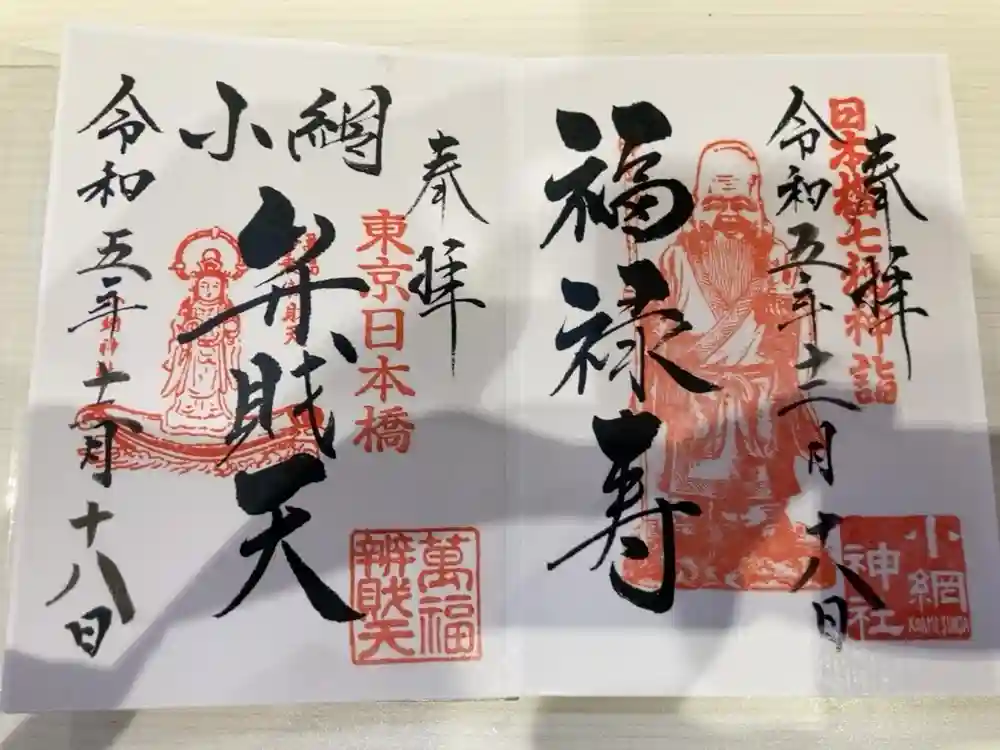 奉拝
日本橋七福神詣
令和五年十二月十八日
福禄寿
小網
神社
KOAMI JINJA
奉拝
東京日本橋
小網
弁財天
萬福
辨財天
令和五年十二月十八日